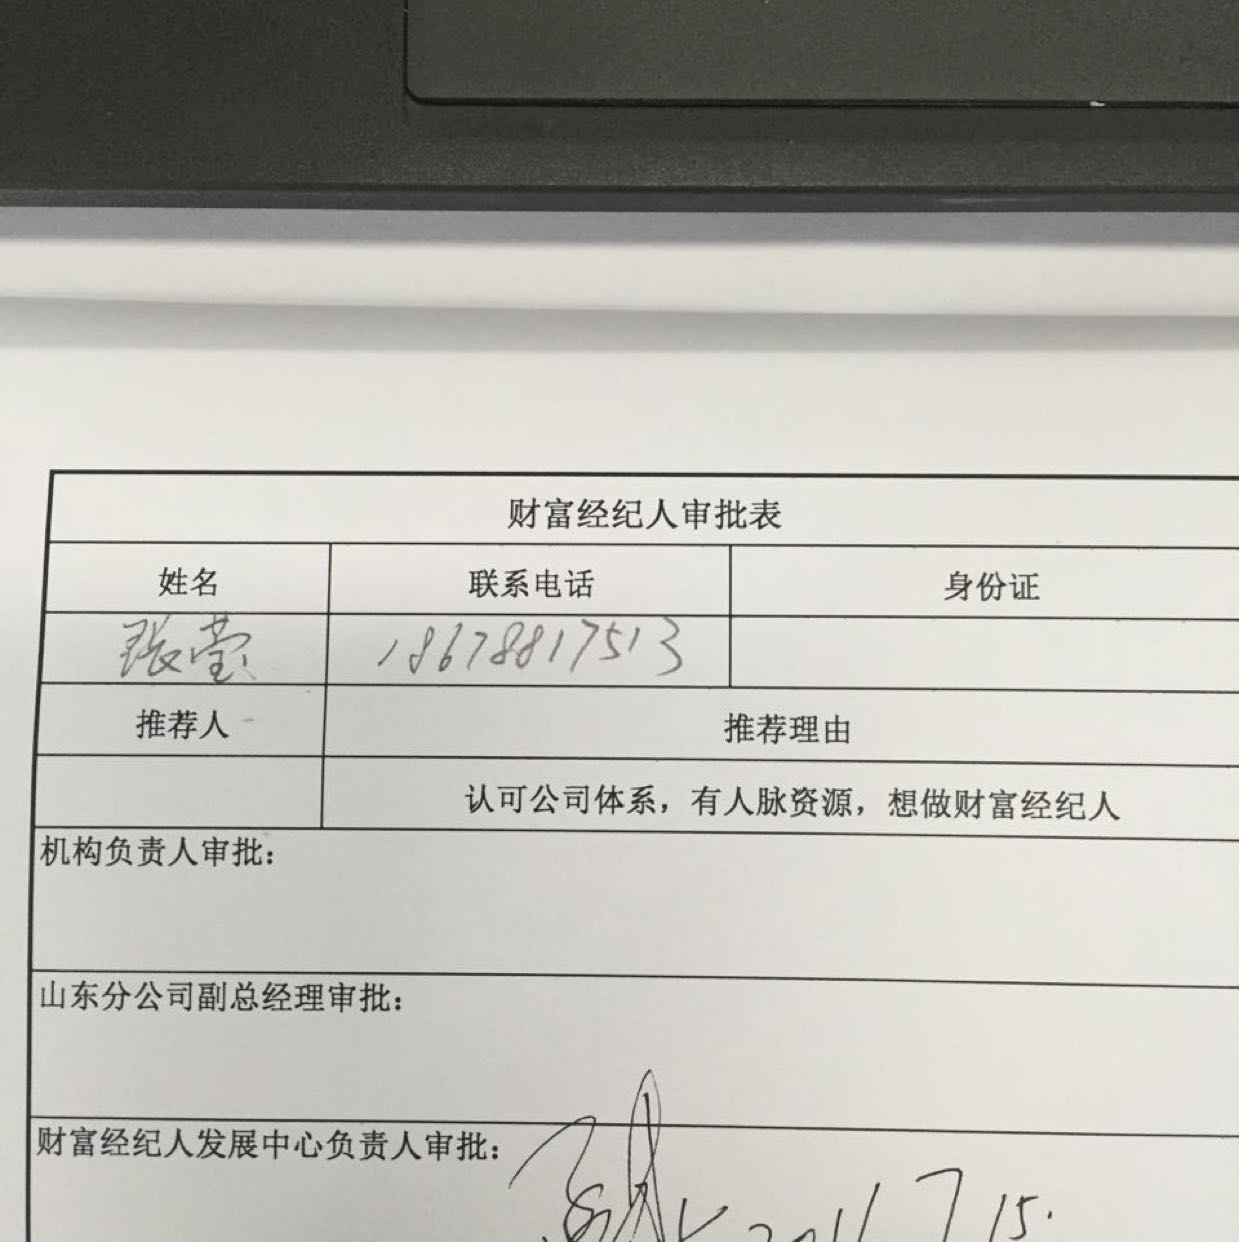 财富经纪人审批表
姓名 联系电话 身份证
张莹 18678817513
推荐人 推荐理由
认可公司体系，有人脉资源，想做财富经纪人
机构负责人审批：
山东分公司副总经理审批：
财富经纪人发展中心负责人审批：
7 15.